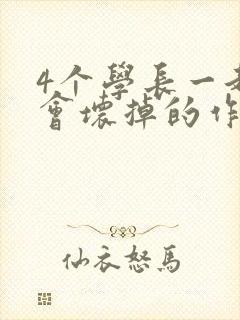 4个學長一
會壞掉的作
仙衣怒馬